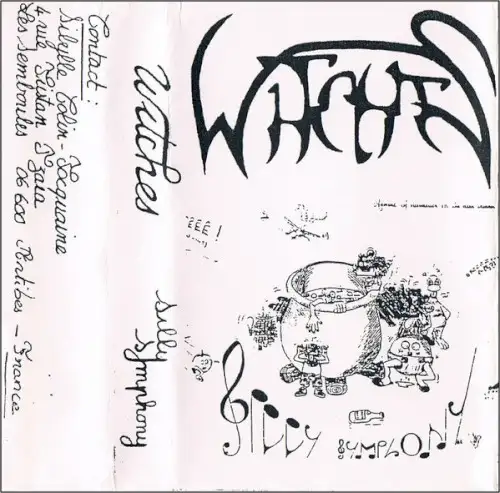 Contact :
Sibylle Colin-Tocquaine
4 rue Tristan Tzara
Les Semboules 06600 Antibes - France
Witches
Silly Symphony
WITCHES
EEE !
SILLY
SYMPHONY